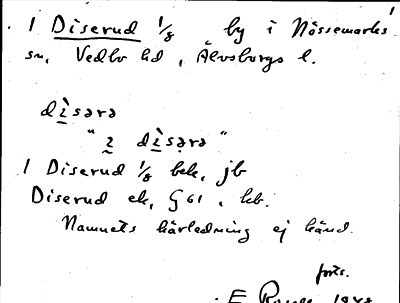 1
1 Diserud 1/8 by i Nössemarks
sn, Vedbo hd, Älvsborgs l.
dìsərə
" i dìsərə "
1 Diserud 1/8 bek, jb
Diserud ek, G 61, kb.
Namnets härledning ej känd.
forts.
E